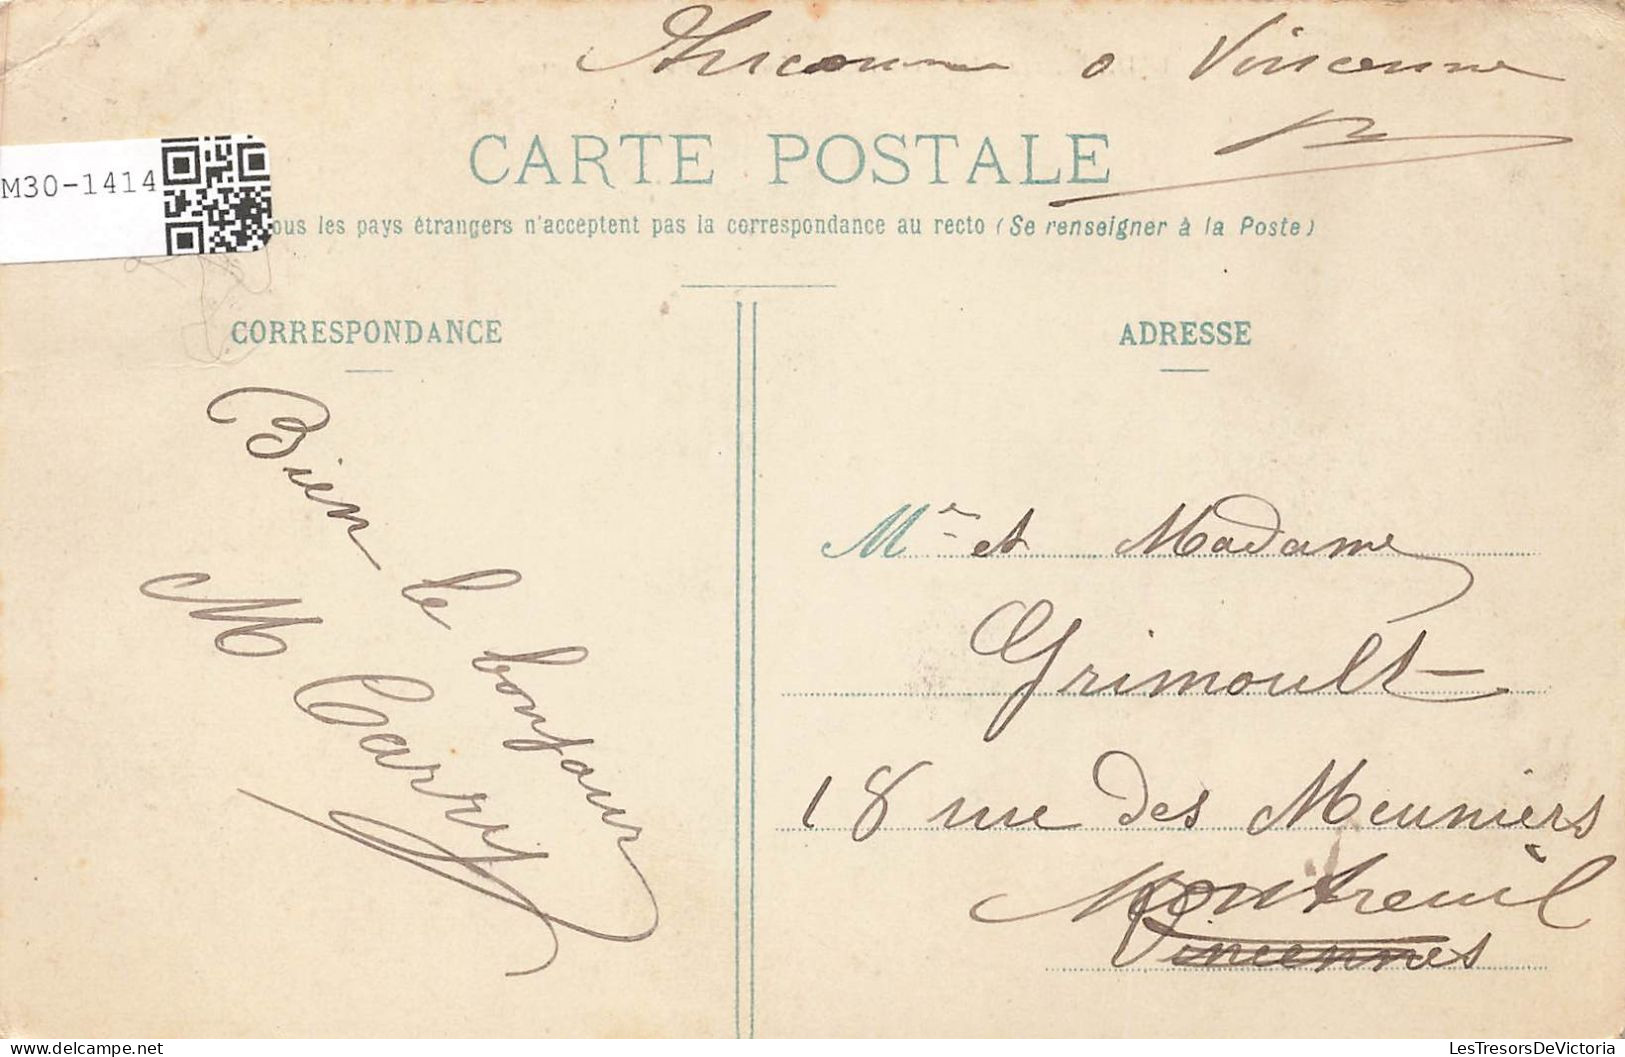 Inconnu a Vincennes
CARTE POSTALE
M30-1414
ous les pays étrangers n'acceptent pas la correspondance au recto (Se renseigner à la Poste)
CORRESPONDANCE
Bien le bonjour
M Carry
ADRESSE
Mr et Madame
Grimoult
18 rue des Meuniers
Montreuil
Vincennes
LesTresorsDeVictoria